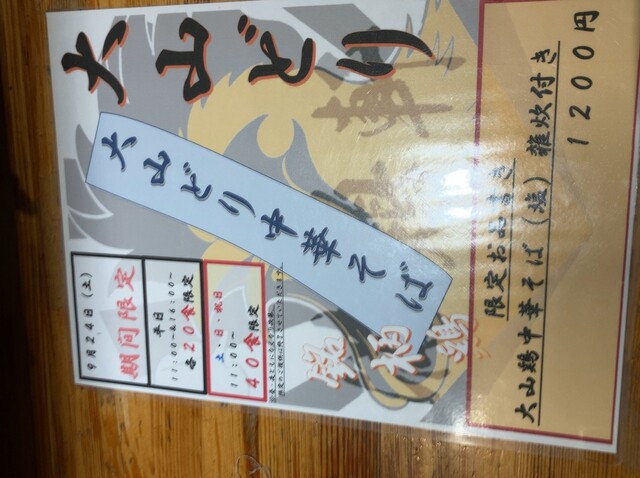 大山どり
大山どり中華そば
限定お品書き
大山鶏中華そば（塩）雑炊付き
1200円
9月24日（土）
期間限定
平日
11:00～&16:00～
各20食限定
土・日・祝日
11:00～
40食限定